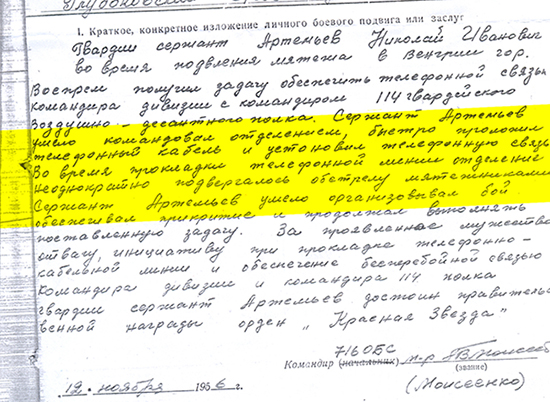 I. Краткое, конкретное изложение личного боевого подвига или заслуг
Гвардии сержант Артемьев Николай Иванович
во время подвления мятежа в Венгрии гор.
Воспрем получил задачу обеспечить телефонной связью
командира дивизии с командиром 114 гвардейского
воздушно-десантного полка. Сержант Артемьев
умело командовал отделением, быстро проложил
телефонный кабель и установил телефонную связь
Во время прокладки телефонной линии отделение
неоднократно подвергалось обстрелу мятежниками
Сержант Артемьев умело организовывал бой.
обеспечивал прикрытие и продолжал выполнять
поставленную задачу. За проявленное мужество
отвагу, инициативу при прокладке телефонно-
кабельной линии и обеспечение бесперебойной связью
командира дивизии и командира 114 полка
гвардии сержант Артемьев достоин правительс-
венной награды орден „Красная Звезда"
716 ОБС
Командир (начальник) м-р
(звание)
(Моисеенко)
12. ноября 1956 г.